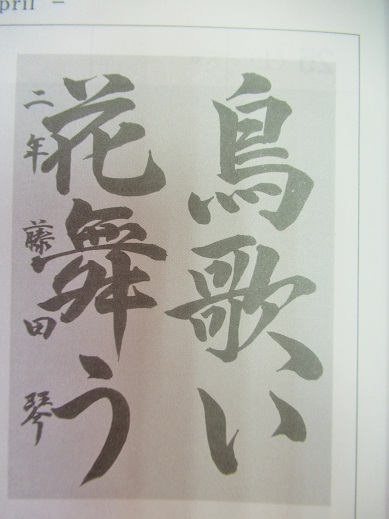 pril -
鳥歌い
花舞う
二年 藤田 琴